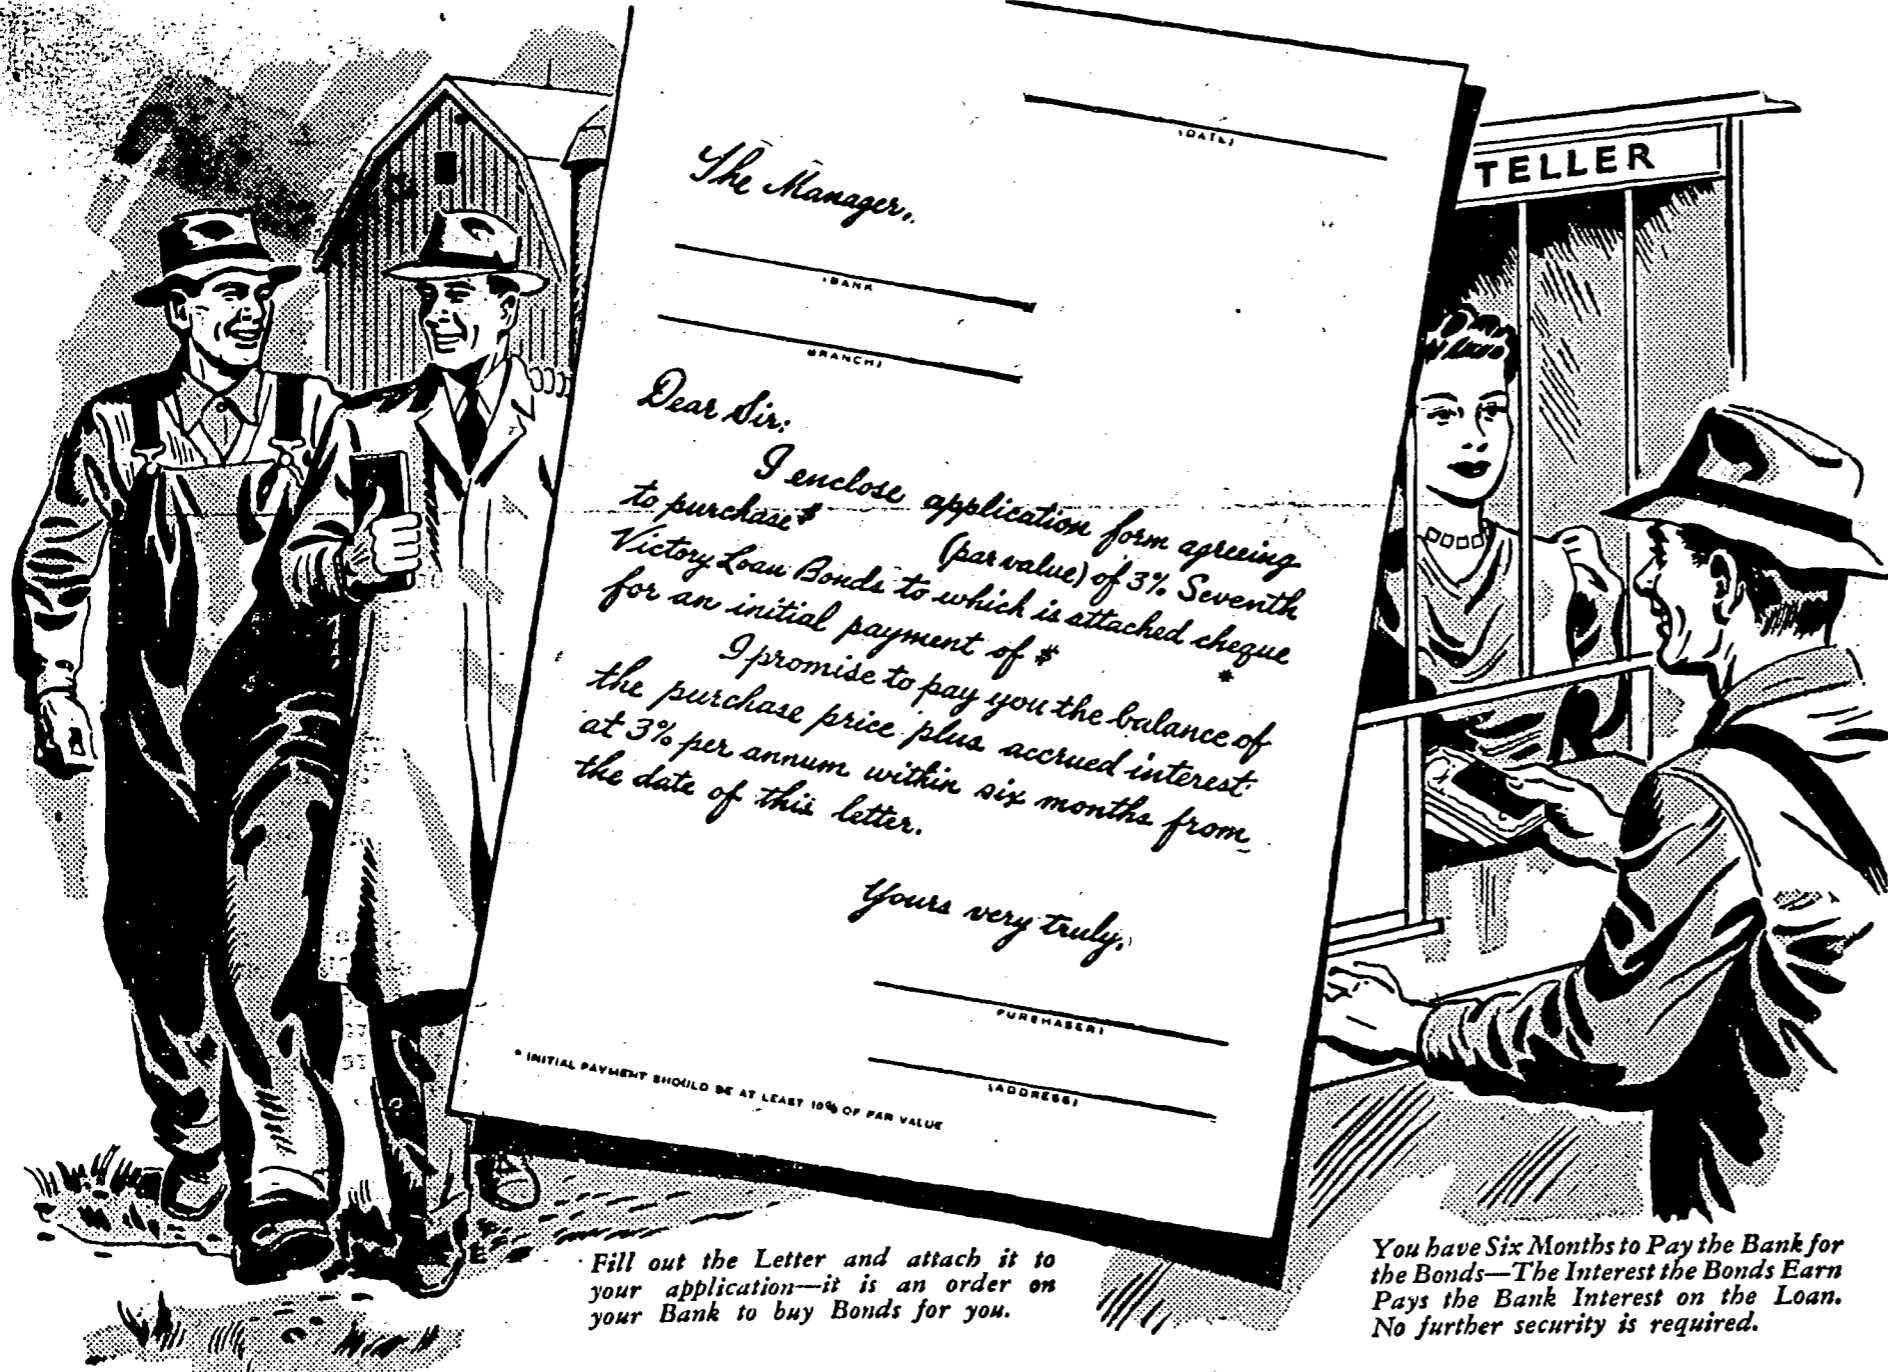 (DATE)
The Manager,
(BANK
(BRANCH)
Dear Sir:
I enclose application form agreeing
to purchase $ (par value) of 3% Seventh
Victory Loan Bonds to which is attached cheque
for an initial payment of $ *
I promise to pay you the balance of
the purchase price plus accrued interest
at 3% per annum within six months from
the date of this letter.
Yours very truly,
(PURCHASER)
(ADDRESS)
* INITIAL PAYMENT SHOULD BE AT LEAST 10% OF PAR VALUE
TELLER
Fill out the Letter and attach it to
your application—it is an order on
your Bank to buy Bonds for you.
You have Six Months to Pay the Bank for
the Bonds—The Interest the Bonds Earn
Pays the Bank Interest on the Loan.
No further security is required.